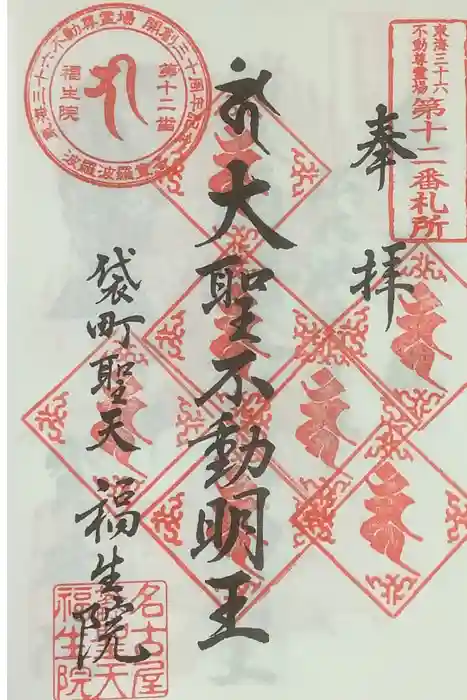 東海三十六
不動尊霊場
第十二番札所
奉拝
大聖不動明王
袋町聖天 福生院
東海三十六不動尊霊場 開創三十周年記念
第十二番
福生院
波羅波羅蜜
名古屋
福生院